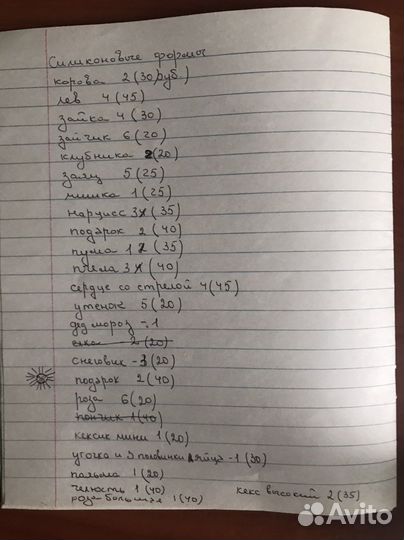 Силиконовые формы
корова 2 (30 руб.)
лев 4 (45)
зайка 4 (30)
зайчик 6 (20)
клубника 2 (20)
заяц 5 (25)
мишка 1 (25)
нарцисс 3 (35)
подарок 2 (40)
пума 1 (35)
пчела 3 (40)
сердце со стрелой 4 (45)
утенок 5 (20)
дед мороз - 1
елка 2 (20)
снеговик - 3 (20)
подарок 2 (40)
роза 6 (20)
пончик 1 (40)
кексик мини 1 (20)
уточка и 3 половинки яйца - 1 (30)
пальма 1 (20)
челюсть 1 (40)
кекс высокий 2 (35)
роза большая 1 (40)
Avito